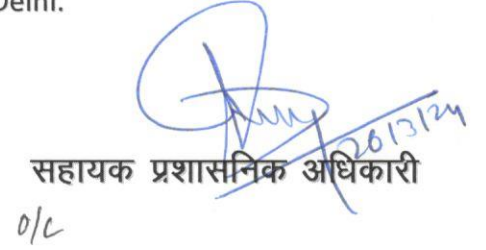 Delhi.
20/3/24
सहायक प्रशासनिक अधिकारी
o/c